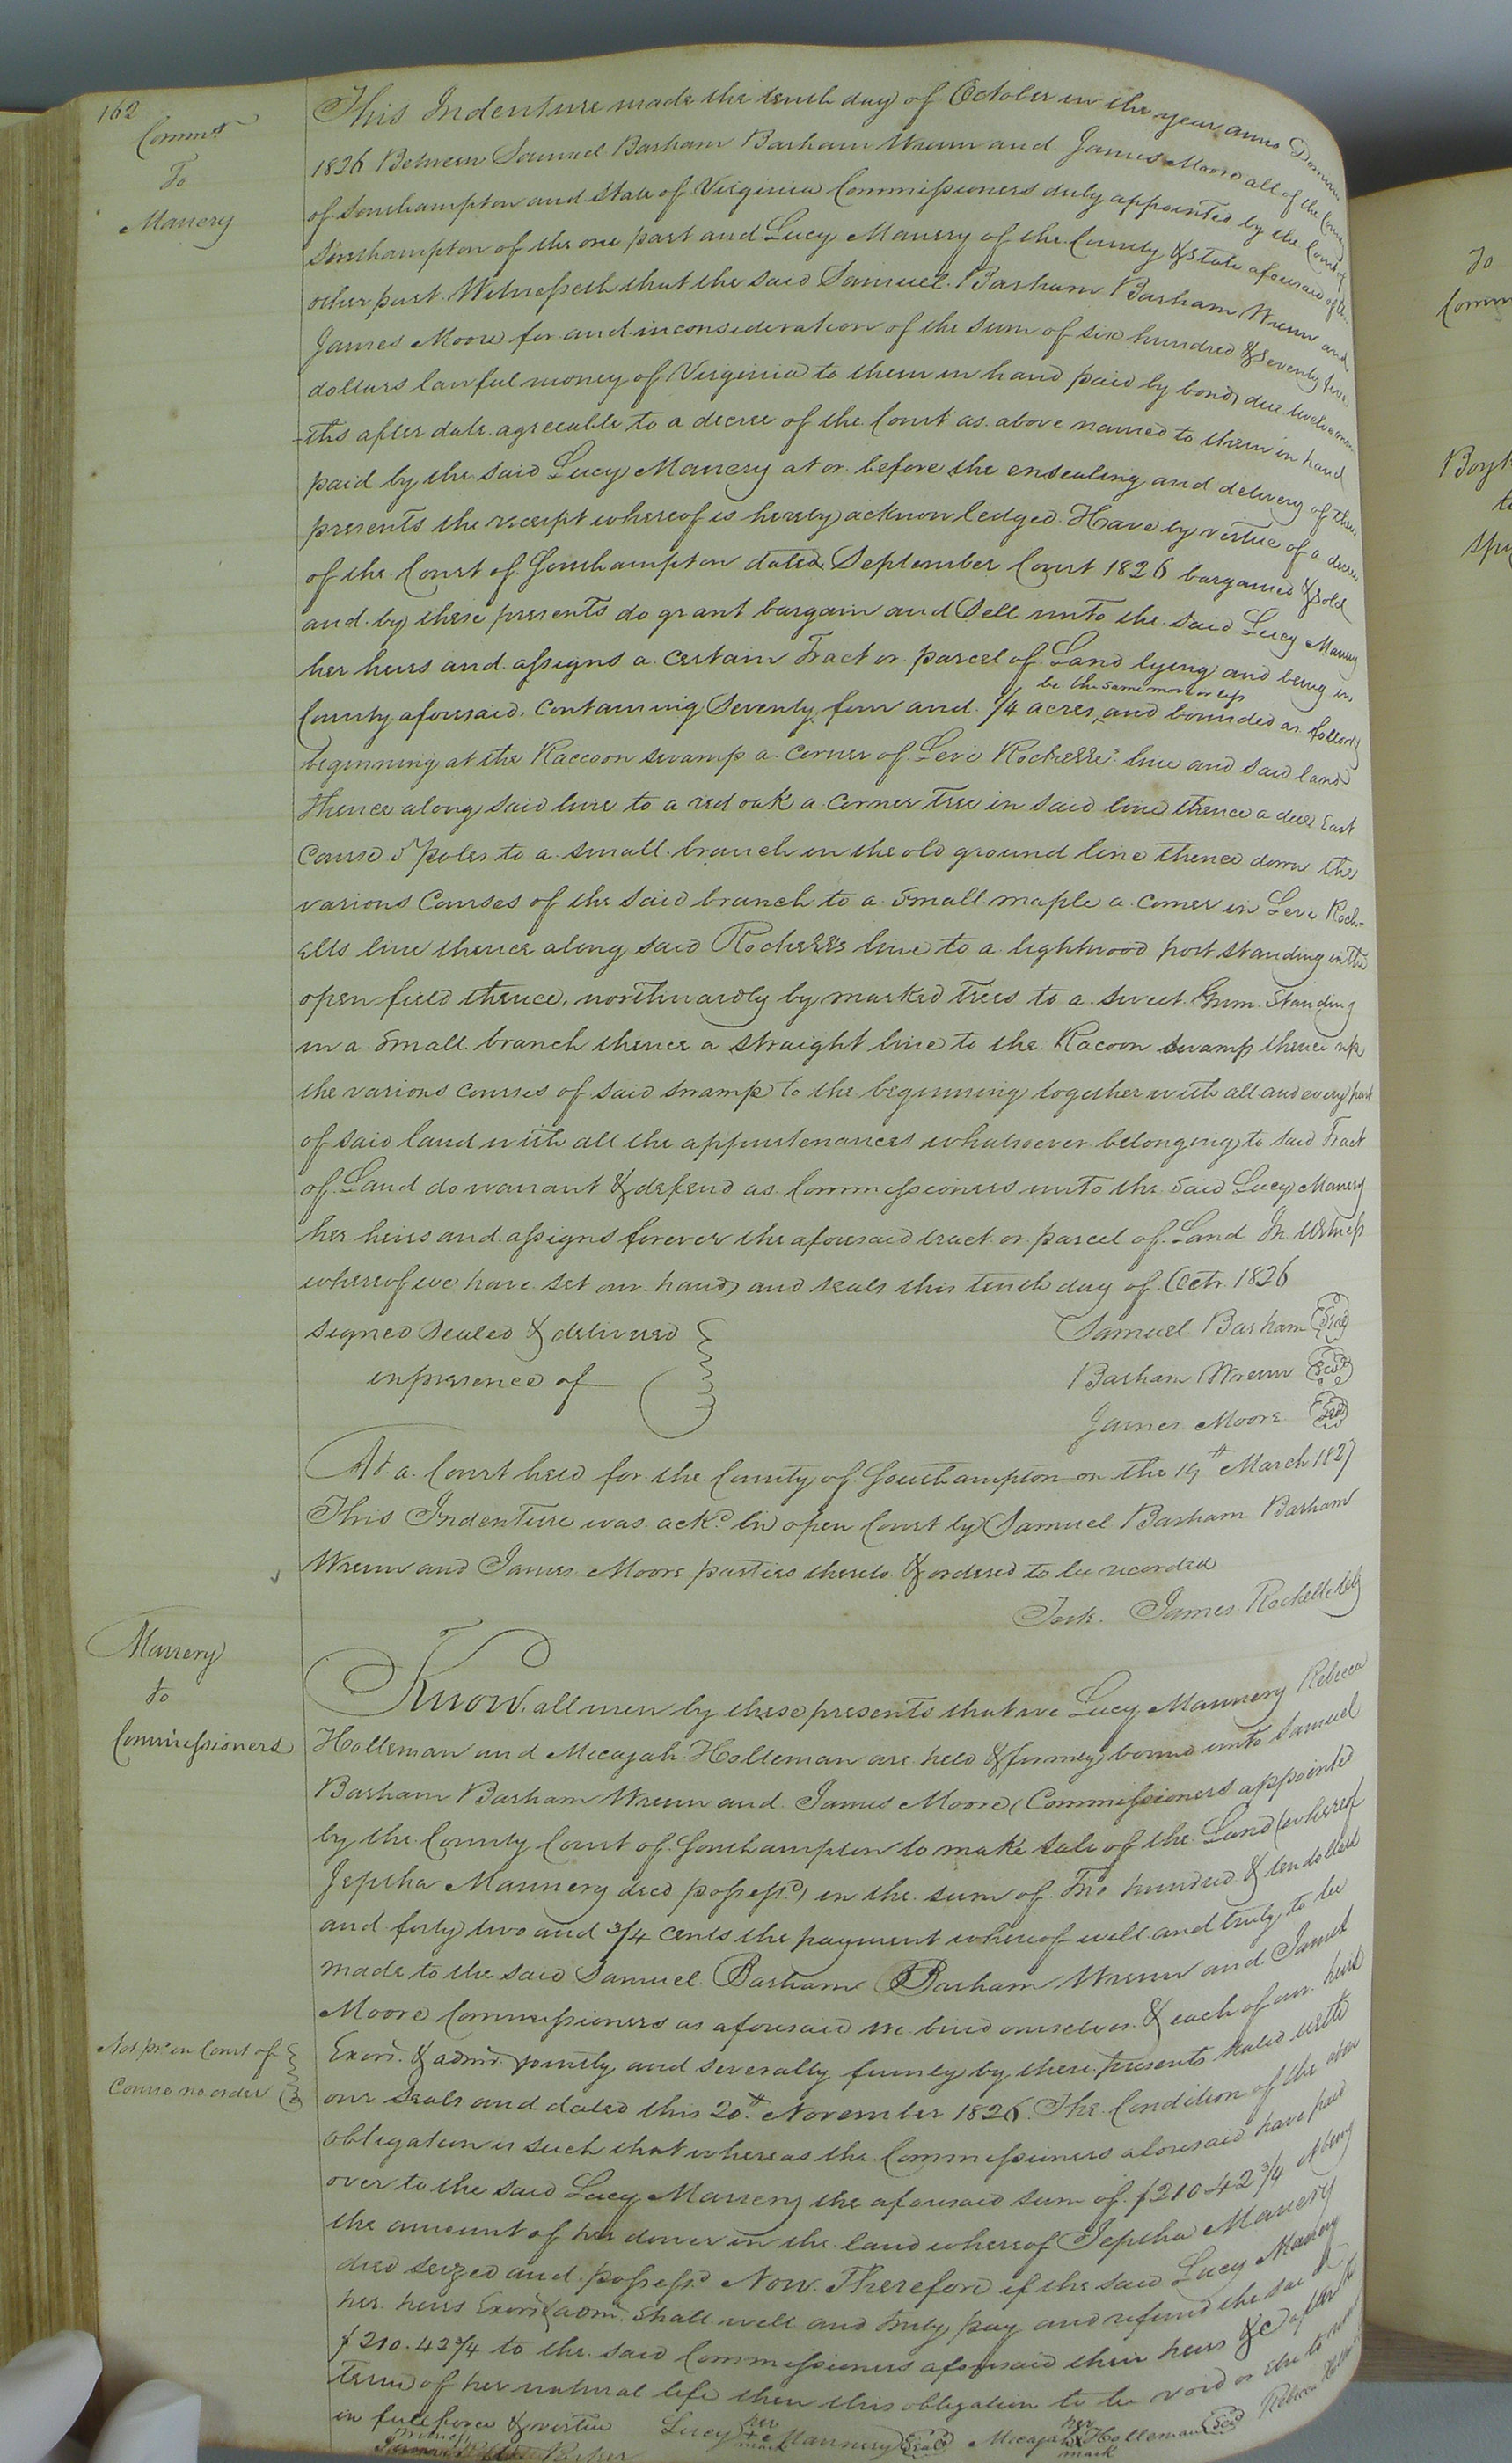 162
Commrs
To
Manery
This Indenture made the tenth day of October in the year anno Domini
1826 Between Samuel Barham Barham Wrenn and James Moore all of the County
of Southampton and State of Virginia Commissioners duly appointed by the Court of
Southampton of the one part and Lucy Manery of the County & State aforesaid of the
other part Witnesseth that the said Samuel Barham Barham Wrenn and
James Moore for and in consideration of the sum of six hundred & seventy five
dollars lawful money of Virginia to them in hand paid by bond due twelve mon
-ths after date agreeable to a decree of the Court as above named to them in hand
paid by the said Lucy Manery at or before the ensealing and delivery of these
presents the receipt whereof is hereby acknowledged Have by virtue of a decree
of the Court of Southampton dated September Court 1826 bargained & sold
and by these presents do grant bargain and Sell unto the said Lucy Manery
her heirs and assigns a certain Tract or parcel of Land lying and being in
be the same more or less
County aforesaid, Containing Seventy four and 1/4 acres, and bounded as follows
beginning at the Raccoon swamp a corner of Levi Rochelle's line and said land
thence along said line to a red oak a corner tree in said line thence a due East
Course 5 poles to a small branch in the old ground line thence down the
various Courses of the said branch to a small maple a corner in Levi Roch-
ells line thence along said Rochells line to a lightwood post standing in the
open field thence, northwardly by marked trees to a sweet Gum Standing
in a small branch thence a straight line to the Racoon swamp thence up
the various courses of said swamp to the beginning together with all and every part
of said land with all the appurtenances whatsoever belonging to said Tract
of Land do warrant & defend as Commissioners unto the said Lucy Manery
her heirs and assigns forever the aforesaid tract or parcel of Land In Witness
whereof we have set our hands and seals this tenth day of Octr. 1826
signed Sealed & delivered
in presence of
Samuel Barham Seal
Barham Wrenn Seal
James Moore Seal
At a Court held for the County of Southampton on the 19th March 1827
This Indenture was ackd. in open Court by Samuel Barham Barham
Wrenn and James Moore parties thereto & ordered to be recorded
Teste. James Rochelle clk
Manery
to
Commissioners
Know all men by these presents that we Lucy Mannery Rebecca
Holleman and Micajah Holleman are held & firmly bound unto Samuel
Barham Barham Wrenn and James Moore (Commissioners appointed
by the County Court of Southampton to make sale of the Land whereof
Jeptha Mannery died possessd.) in the sum of Two hundred & ten dollars
and forty two and 3/4 cents the payment whereof well and truly to be
made to the said Samuel Barham Barham Wrenn and James
Moore Commissioners as aforesaid we bind ourselves & each of our heirs
Exors. & admrs. jointly and severally firmly by these presents sealed with
our seals and dated this 20th November 1826. The Condition of the above
obligation is such that whereas the Commissioners aforesaid have paid
over to the said Lucy Manery the aforesaid sum of $210.42 3/4 being
the amount of her dower in the land whereof Jeptha Manery
died seized and possessd. Now Therefore if the said Lucy Manery
her heirs Exors & admr. shall well and truly pay and refund the said
$210.42 3/4 to the said Commissioners aforesaid their heirs &c after the
term of her natural life then this obligation to be void or else to remain
in full force & virtue
Lucy her mark Mannery Seal Micajah her mark Holleman Seal Rebecca
Not pr. in Court of
Course no order
To
Comm